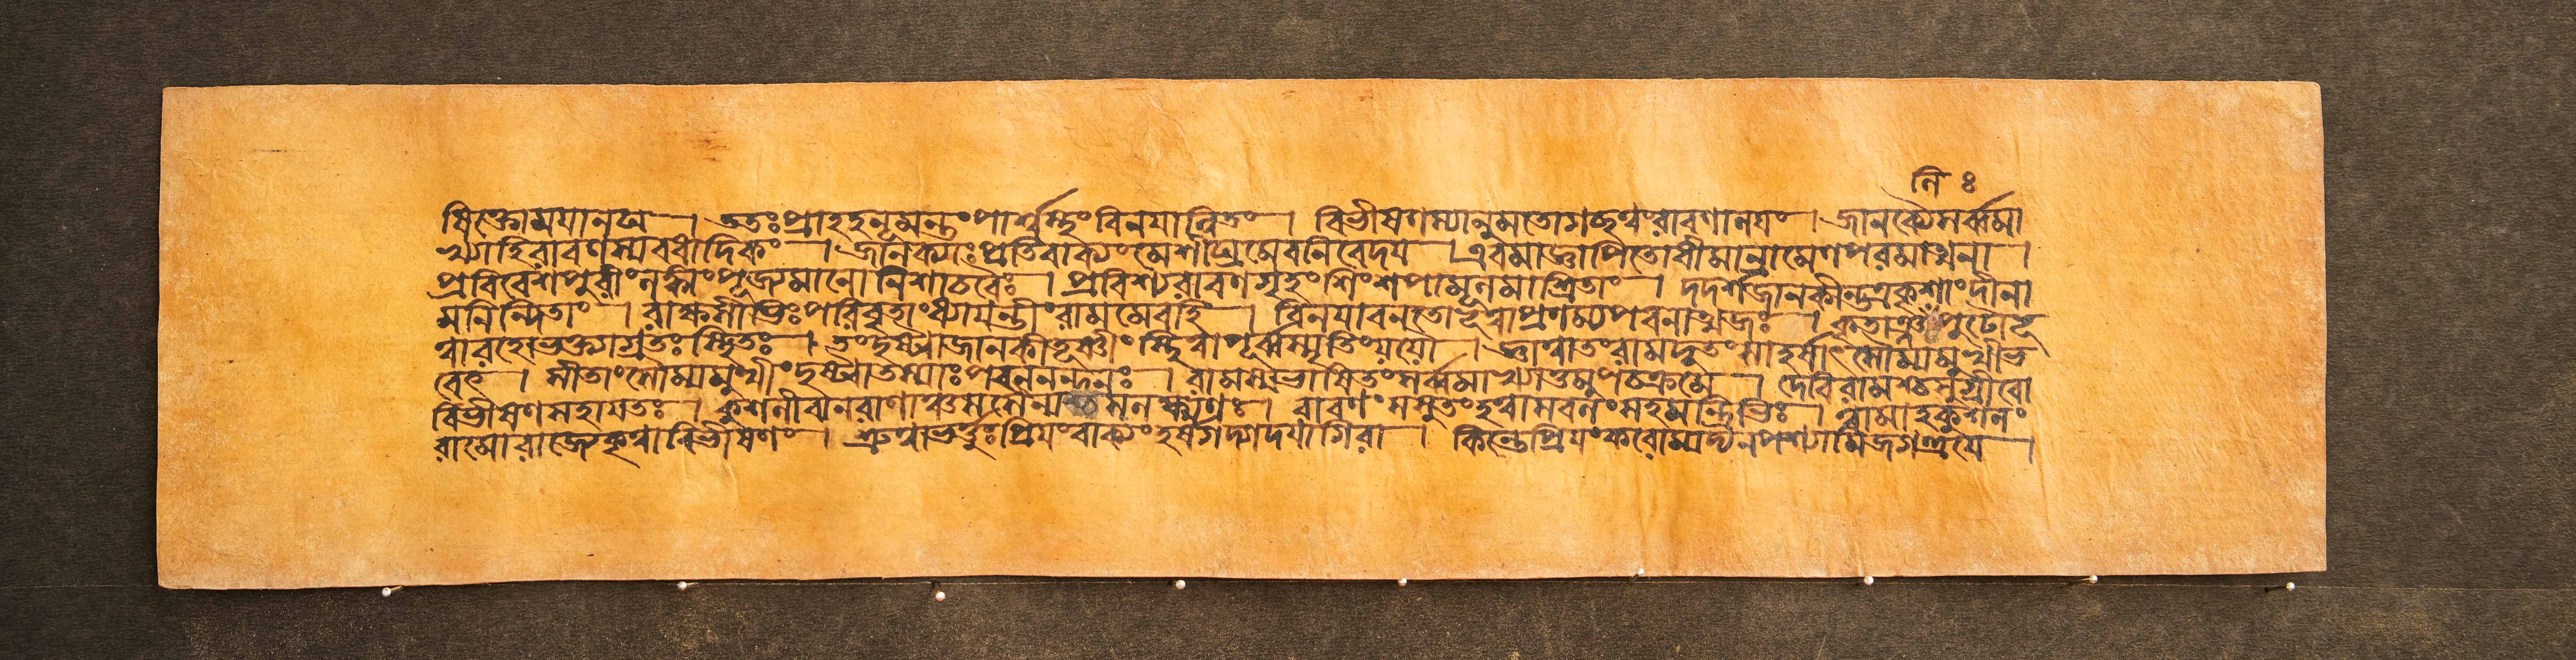 নিঃ
ষিক্তোময়ানঘ । ততঃপ্রাহহনূমন্তংপার্শ্বস্থংবিনয়ান্বিতং । বিভীষণস্যানুমতোগচ্ছত্বংরাবণালয়ং । জানক্যৈসর্ব্বমা
খ্যাহিরাবণস্যবধাদিকং । জানক্যাঃপ্রতিবাক্যংমেশীঘ্রমেবনিবেদয় । এবমাজ্ঞাপিতোধীমান্রামেণপবনাত্মজঃ ।
প্রবিবেশপুরীংলঙ্কাংপূজ্যমানোনিশাচরৈঃ । প্রবিশ্যরাবণগৃহংশিংশপামূলমাশ্রিতাং । দদর্শজানকীন্তত্রকৃশাংদীনা
মনিন্দিতাং । রাক্ষসীভিঃপরিবৃতাংধ্যায়ন্তীংরামমেবহি । বিনয়াবনতোভূত্বাপ্রণম্যপবনাত্মজঃ । কৃতাঞ্জলিপুটোভূ
ত্বারহোভক্ত্যাগ্রতঃস্থিতঃ । তংদৃষ্ট্বাজানকীতূষ্ণীংস্থিত্বাপূর্ব্বস্মৃতিংযযৌ । জ্ঞাত্বাতংরামদূতংসাহর্ষাৎসৌম্যমুখীভ
বেৎ । সীতাংসৌম্যমুখীংদৃষ্ট্বাতস্যাঃপবননন্দনঃ । রামস্যভাষিতংসর্ব্বমাখ্যাতুমুপচক্রমে । দেবিরামশ্চসুগ্রীবো
বিভীষণসহায়তঃ । কুশলীবানরাণাঞ্চসসৈন্যশ্চসলক্ষ্মণঃ । রাবণংসসুতংহত্বাসবলংসহমন্ত্রিভিঃ । ত্বামাহকুশলং
রামোরাজ্যেকৃত্বাবিভীষণং । শ্রুত্বাভর্ত্তুঃপ্রিয়ংবাক্যংহর্ষগদ্গদয়াগিরা । কিন্তেপ্রিয়ংকরোম্যদ্যনপশ্যামিজগত্ত্রয়ে ।